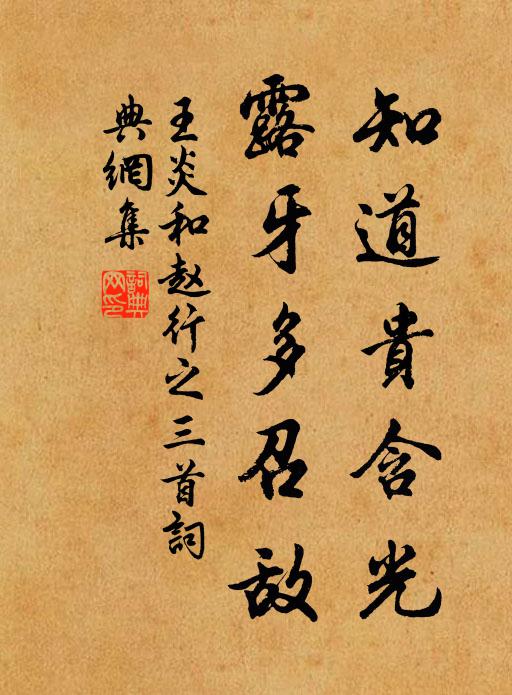 知道貴含光
露牙多召敌
王炎和赵行之三首詞
典網集
詞典網印